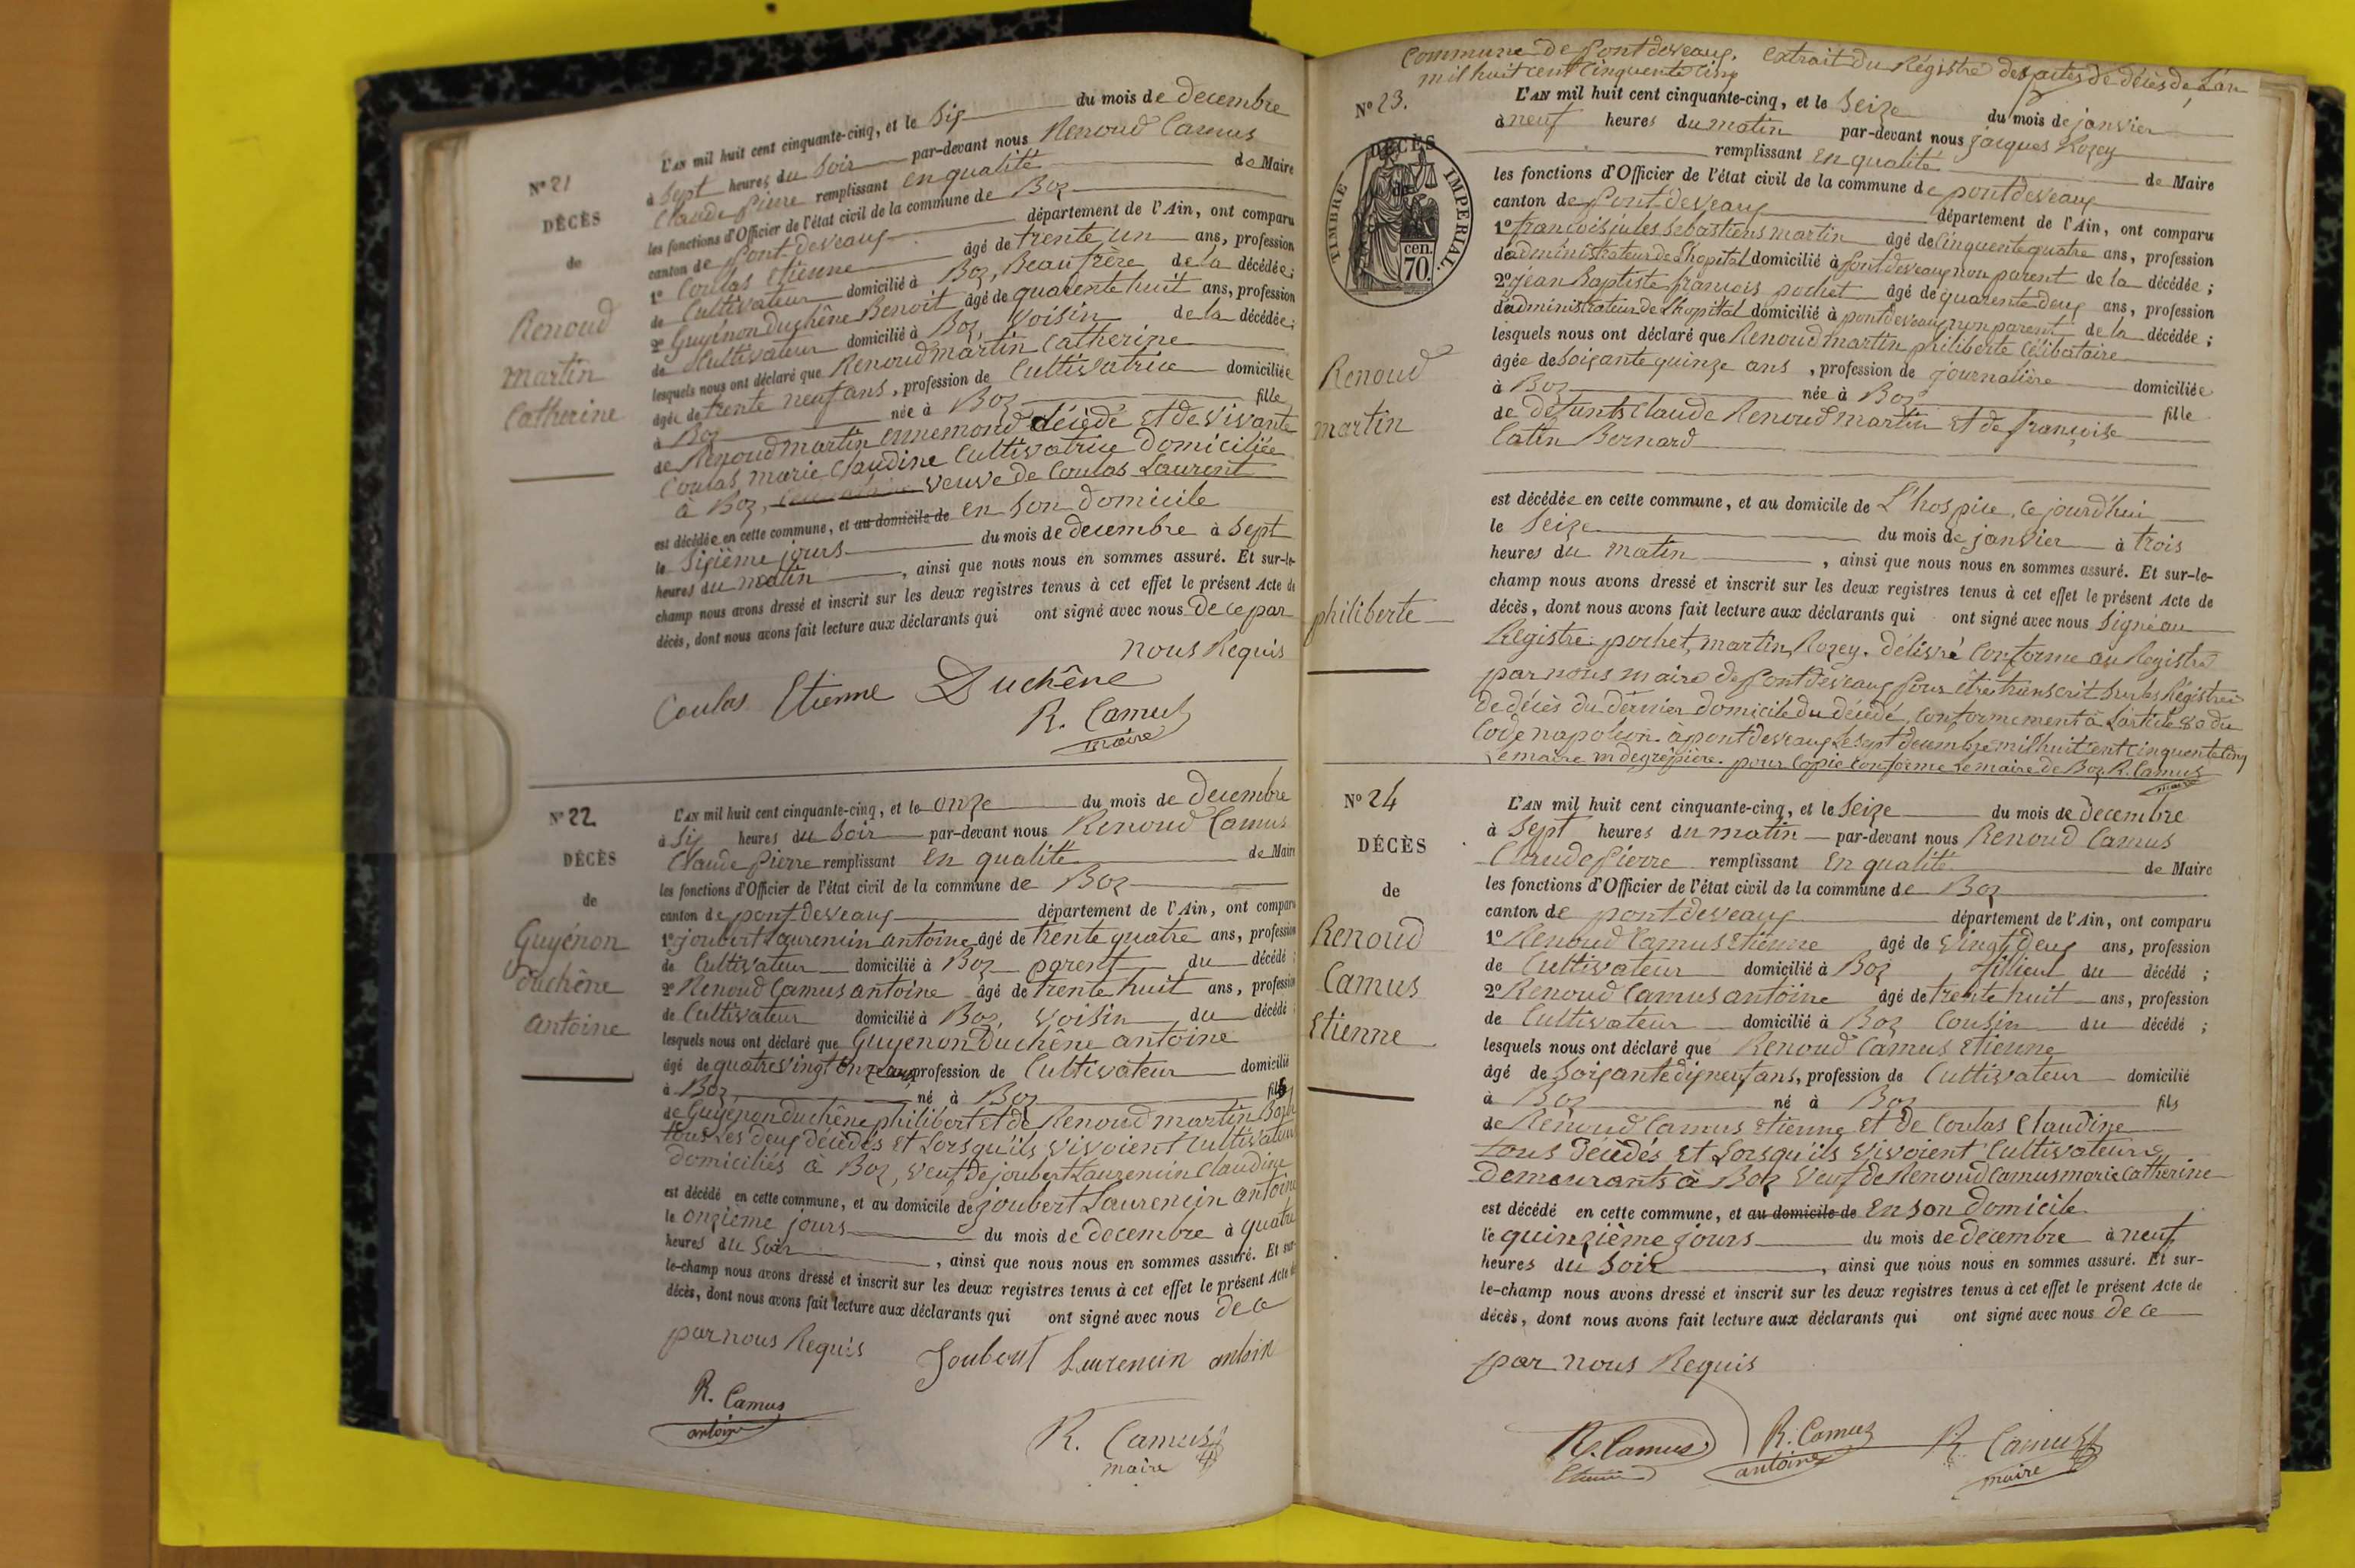 N° 21
DÉCÈS
de
Renoud
martin
Catherine
L'AN mil huit cent cinquante-cinq, et le Six du mois de decembre
à Sept heures du Soir par-devant nous Renoud Camus
Claude pierre remplissant en qualité de Maire
les fonctions d'Officier de l'état civil de la commune de Boz
canton de Pont-deveaux département de l'Ain, ont comparu
1° Coulas Etienne âgé de trente un ans, profession
de Cultivateur domicilié à Boz, Beaufrère de la décédée;
2° Guyénon duchêne Benoit âgé de quarente huit ans, profession
de Cultivateur domicilié à Boz, Voisin de la décédée;
lesquels nous ont déclaré que Renoud martin Catherine
âgée de trente neuf ans, profession de Cultivatrice domiciliée
à Boz née à Boz fille
de Renoud martin ennemond décédé Et de Vivante
Coulas marie Claudine Cultivatrice Domiciliée
à Boz, veuve de Coulas Laurent
est décédée en cette commune, et au domicile de en son domicile
le Sixième jours du mois de decembre à Sept
heures du matin, ainsi que nous nous en sommes assuré. Et sur-le-
champ nous avons dressé et inscrit sur les deux registres tenus à cet effet le présent Acte de
décès, dont nous avons fait lecture aux déclarants qui ont signé avec nous De ce par
nous Requis
Coulas Etienne Duchêne
R. Camus
maire
N° 22
DÉCÈS
de
Guyénon
duchêne
antoine
L'AN mil huit cent cinquante-cinq, et le onze du mois de decembre
à Six heures du Soir par-devant nous Renoud Camus
Claude pierre remplissant en qualité de Maire
les fonctions d'Officier de l'état civil de la commune de Boz
canton de pont-deveaux département de l'Ain, ont comparu
1° joubert Laurencin antoine âgé de trente quatre ans, profession
de Cultivateur domicilié à Boz parent du décédé;
2° Renoud Camus antoine âgé de trente huit ans, profession
de Cultivateur domicilié à Boz, Voisin du décédé;
lesquels nous ont déclaré que Guyenon Duchêne antoine
âgé de quatre Vingt onze ans profession de Cultivateur domicilié
à Boz né à Boz fils
de Guyenon duchêne philibert Et de Renoud martin
tous Les deux décédés Et Lorsqu'ils Vivoient Cultivateurs
domiciliés à Boz, Veuf de joubert Laurencin Claudine
est décédé en cette commune, et au domicile de joubert Laurencin antoine
le onzieme jours du mois de decembre à quatre
heures du Soir, ainsi que nous nous en sommes assuré. Et sur-
le-champ nous avons dressé et inscrit sur les deux registres tenus à cet effet le présent Acte de
décès, dont nous avons fait lecture aux déclarants qui ont signé avec nous De ce
par nous Requis Joubert Laurencin antoin
R. Camus
antoine
R. Camus
maire
Commune de Pontdeveaux. Extrait du Régistre des actes de décès de L'an
mil huit cent Cinquente Cinq
N° 23.
DÉCÈS
de
TIMBRE IMPERIAL.
70 cen.
Renoud
martin
philiberte
L'AN mil huit cent cinquante-cinq, et le Seize du mois de janvier
à neuf heures du matin par-devant nous jacques Rozey
remplissant en qualité de Maire
les fonctions d'Officier de l'état civil de la commune de pontdeveaux
canton de Pontdeveaux département de l'Ain, ont comparu
1° francois jules Sebastiens martin âgé de Cinquente quatre ans, profession
d'administrateur de L'hopital domicilié à pontdeveaux non parent de la décédée;
2° jean Baptiste francois pochet âgé de quarente deux ans, profession
d'administrateur de L'hopital domicilié à pontdeveaux non parent de la décédée;
lesquels nous ont déclaré que Renoud martin philiberte Célibataire
âgée de Soixante quinze ans, profession de journalière domiciliée
à Boz née à Boz fille
de défunts Claude Renoud martin Et de françoise
Catin Bernard
est décédée en cette commune, et au domicile de L'hospice, ce jourd'hui
le Seize du mois de janvier à trois
heures du matin, ainsi que nous nous en sommes assuré. Et sur-le-
champ nous avons dressé et inscrit sur les deux registres tenus à cet effet le présent Acte de
décès, dont nous avons fait lecture aux déclarants qui ont signé avec nous Signé au
Registre: pochet, martin, Rozey. Délivré Conforme au Registre
par nous maire de Pontdeveaux pour être transcrit Sur les Régistres
de décès du dernier domicile du décédé, Conformement à L'article 80 du
Code napoleon. à pontdeveaux Le Sept decembre mil huit cent cinquente cinq
Le maire pour Copie Conforme Le maire de Boz R. Camus
maire
N° 24
DÉCÈS
de
Renoud
Camus
Etienne
L'AN mil huit cent cinquante-cinq, et le Seize du mois de decembre
à Sept heures du matin par-devant nous Renoud Camus
Claude Pierre remplissant en qualité de Maire
les fonctions d'Officier de l'état civil de la commune de Boz
canton de pontdeveaux département de l'Ain, ont comparu
1° Renoud Camus Etienne âgé de Vingt deux ans, profession
de Cultivateur domicilié à Boz, filieul du décédé;
2° Renoud Camus antoine âgé de trente huit ans, profession
de Cultivateur domicilié à Boz Cousin du décédé;
lesquels nous ont déclaré que Renoud Camus Etienne
âgé de Soixante dix neuf ans, profession de Cultivateur domicilié
à Boz né à Boz fils
de Renoud Camus Etienne Et de Coulas Claudine
tous Décédés Et Lorsqu'ils Vivoient Cultivateurs
Demeurants à Boz Veuf de Renoud Camus marie Catherine
est décédé en cette commune, et au domicile de En son Domicile
le quinzième jours du mois de decembre à neuf
heures du Soir, ainsi que nous nous en sommes assuré. Et sur-
le-champ nous avons dressé et inscrit sur les deux registres tenus à cet effet le présent Acte de
décès, dont nous avons fait lecture aux déclarants qui ont signé avec nous De ce
par nous Requis
R. Camus R. Camus R. Camus
Etienne antoine maire